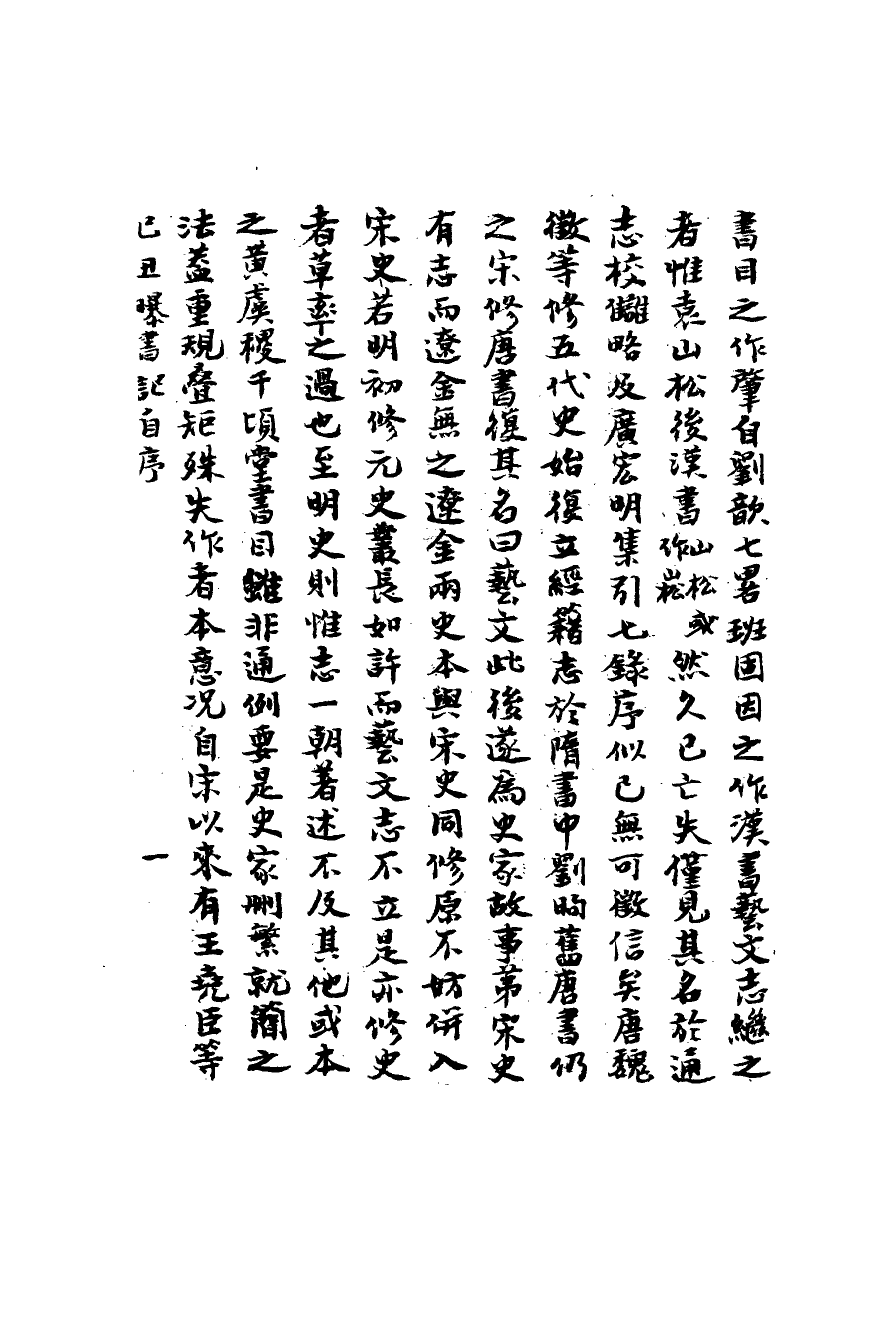 書目之作肇自劉歆七畧班固因之作漢書藝文志繼之
者惟袁山松後漢書山松或作崧然久已亡失僅見其名於通
志校讎略及廣宏明集引七錄序似已無可徵信矣唐魏
徵等修五代史始復立經籍志於隋書中劉昫舊唐書仍
之宋修唐書復其名曰藝文此後遂為史家故事第宋史
有志而遼金無之遼金兩史本與宋史同修原不妨併入
宋史若明初修元史叢長如許而藝文志不立是亦修史
者草率之過也至明史則惟志一朝著述不及其他或本
之黃虞稷千頃堂書目雖非通例要是史家刪繁就簡之
法蓋重規疊矩殊失作者本意况自宋以來有王堯臣等
己丑曝書記自序
一